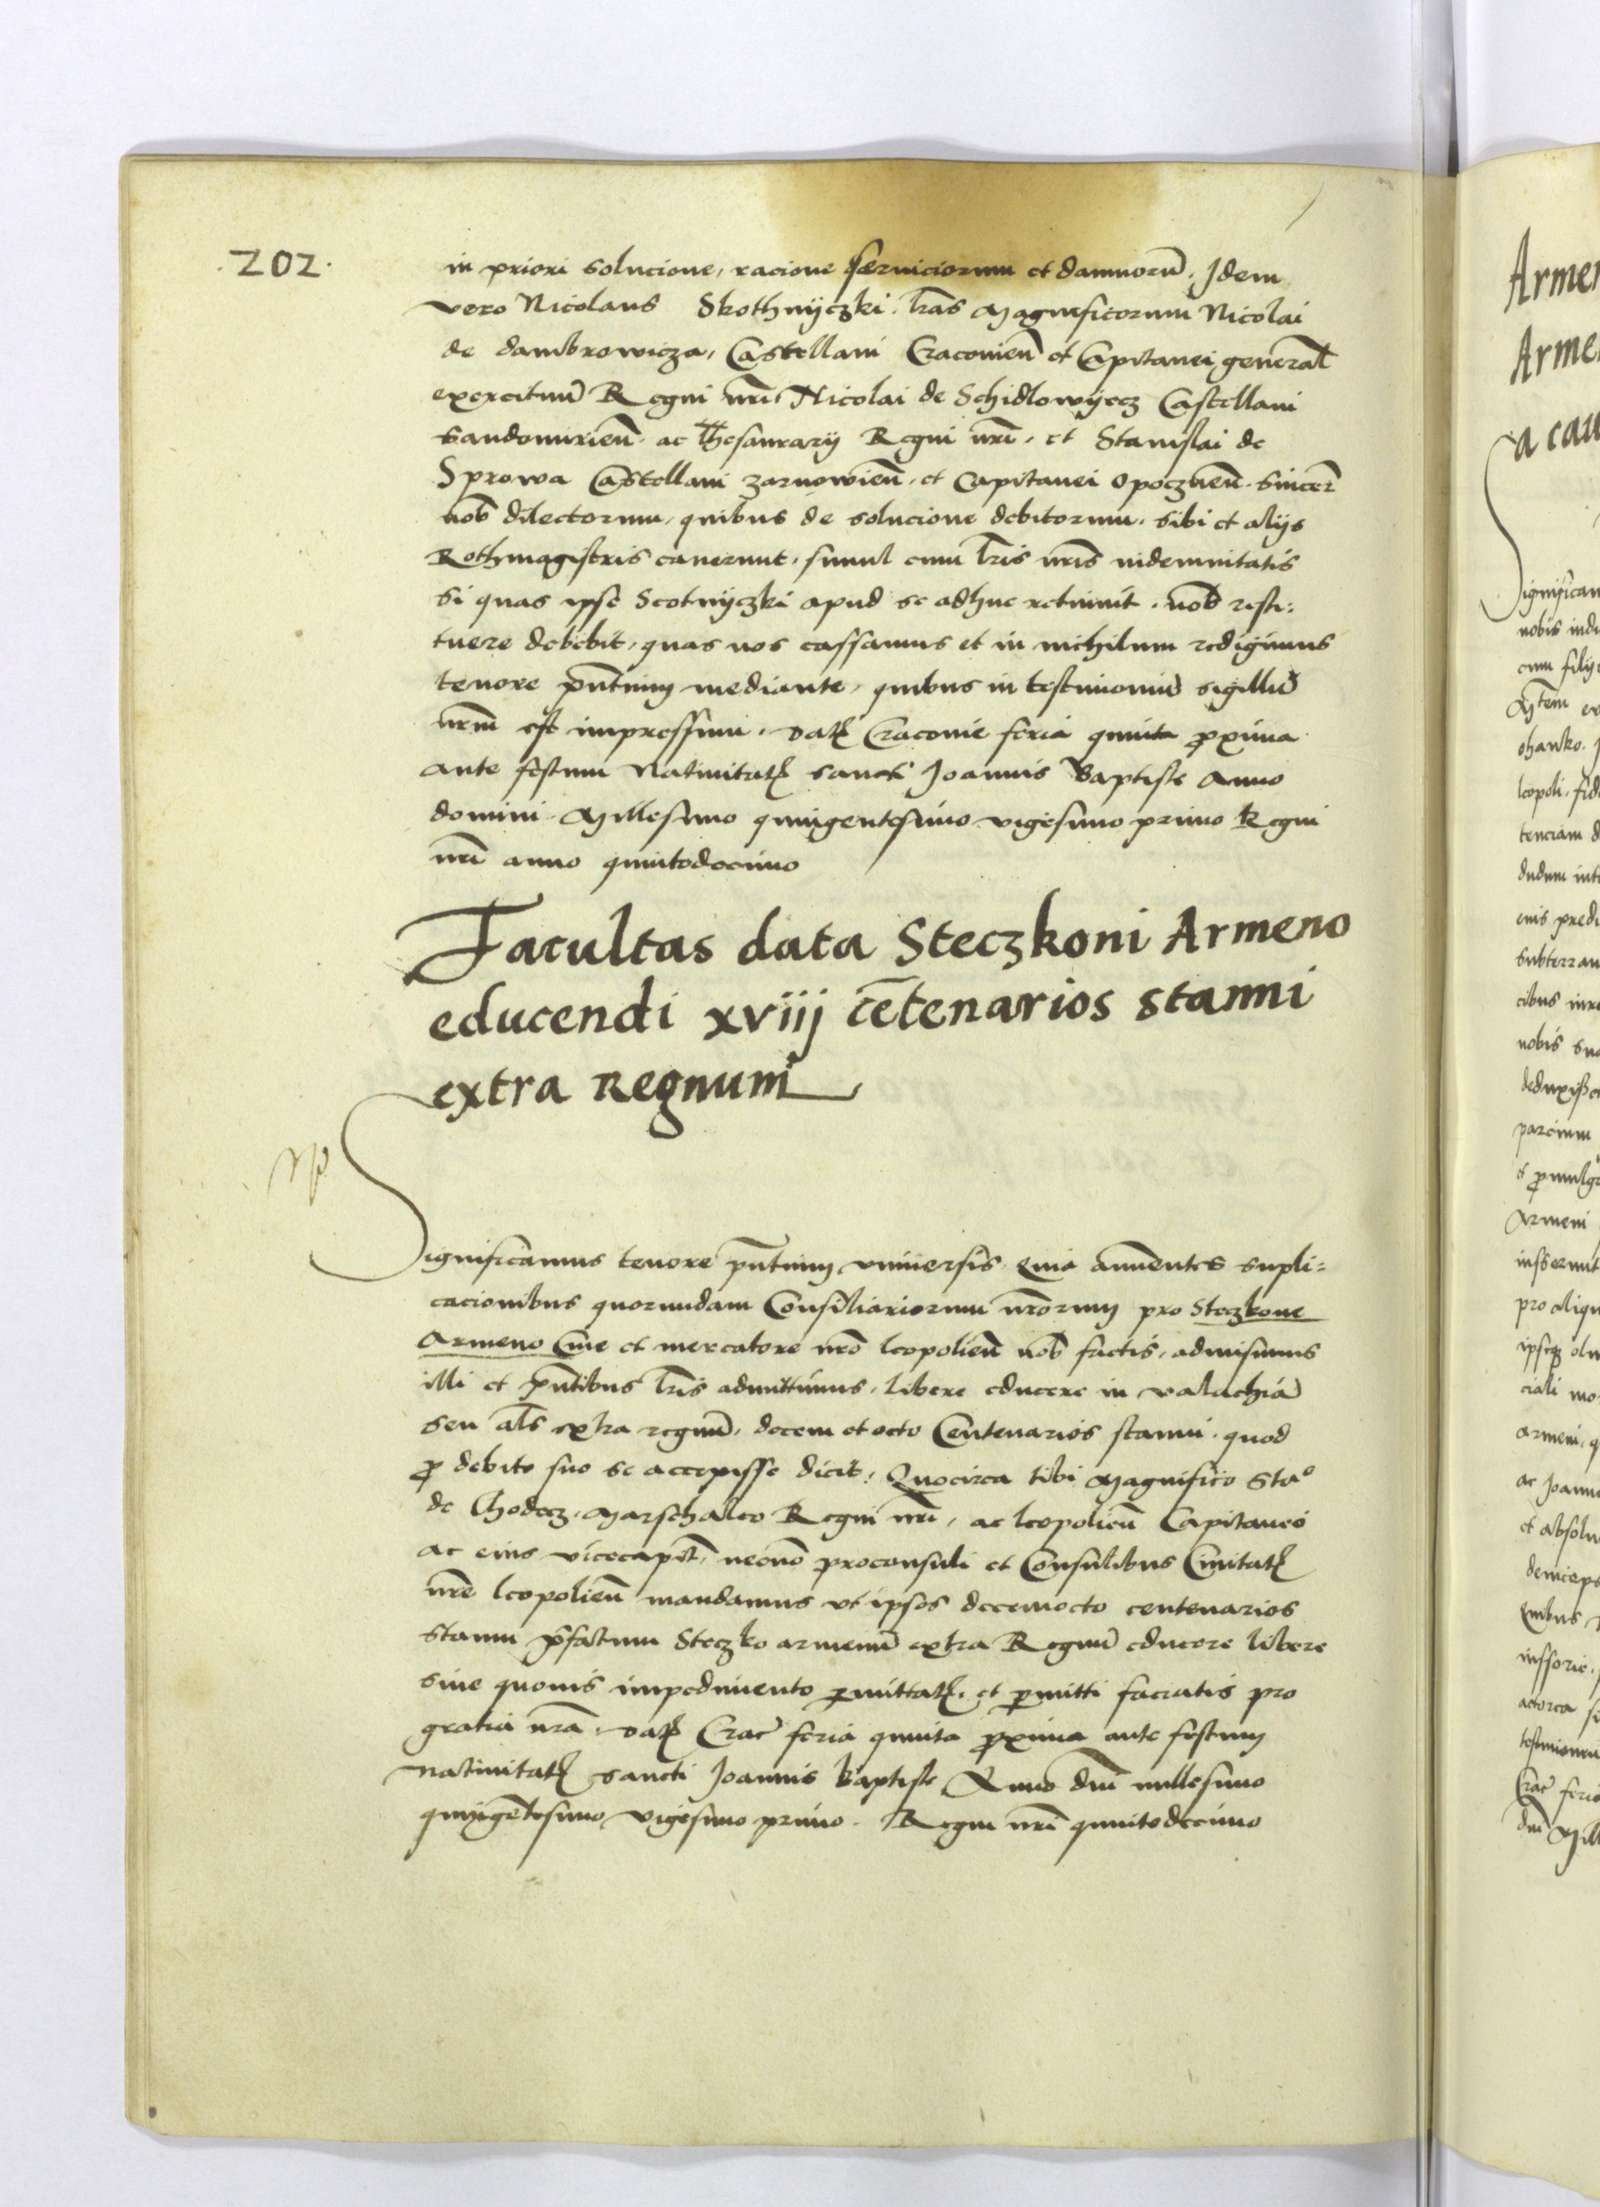 .202.
in priori solucione, racione serviciorum et damnorū. Jdem
vero Nicolaus Skothnyczki. lr̄as Magnificorum Nicolai
de dambrowicza, Castellani Cracovien̄ et Capitanei general
exercituū Regni nr̄i Nicolai de Schidlowyecz Castellani
Sandomirien̄. ac Thesaurarij Regni nr̄i. et Stanislai de
Sprowa Castellani zarnowien̄. et Capitanei opocznen̄. sincer
nob dilectorum, quibus de solucione debitorum, sibi et alijs
Rothmagistris caverunt, simul cum lr̄is nr̄is indemnitatis
si quas ipse Scotnyczki apud se adhuc retinuit. nob resti:
tuere debebit, quas nos cassamus et in nichilum redigimus
tenore pn̄tium mediante, quibus in testimoniū sigillū
nr̄m est impressum. datꝭ Cracovie feria quinta ꝓxima
ante festum Nativitatꝭ sancti Joannis Baptiste Anno
domini Millesimo quingentesimo vigesimo primo Regni
nr̄i anno quintodecimo
Facultas data Steczkoni Armeno
educendi xviij cētenarios stanni
extra Regnum
Significamus tenore pn̄tium vniversis Quia annuentes supli:
cacionibus quorundam Consiliariorum nr̄orum pro Steczkone
Armeno Cive et mercatore nr̄o leopolien̄ nob factis, admisimus
illi et pn̄tibus lr̄is admittimus, libere educere in valachiā
seu al̄s extra regnū, decem et octo Centenarios stanni, quod
ꝓ debito suo se accepisse dicit, Quocirca tibi Magnifico Sta°
de Chodecz, Marschalco Regni nr̄i, ac leopolien̄ Capitaneo
ac eius vicecapit̄, necnō proconsuli et Consulibus Civitatꝭ
nr̄e leopolien̄ mandamus vt ipsos decemocto centenarios
stanni p̄fatum Steczko armenū extra Regnū educere libere
sine quovis impedimento ꝑmittatꝭ. et ꝑmitti faciatis pro
gratia nr̄a. datꝭ Crac feria quinta ꝓxima ante festum
nativitatꝭ sancti Joannis Baptiste Anno dn̄i millesimo
quingētesimo vigesimo primo. Regni nr̄i quintodecimo